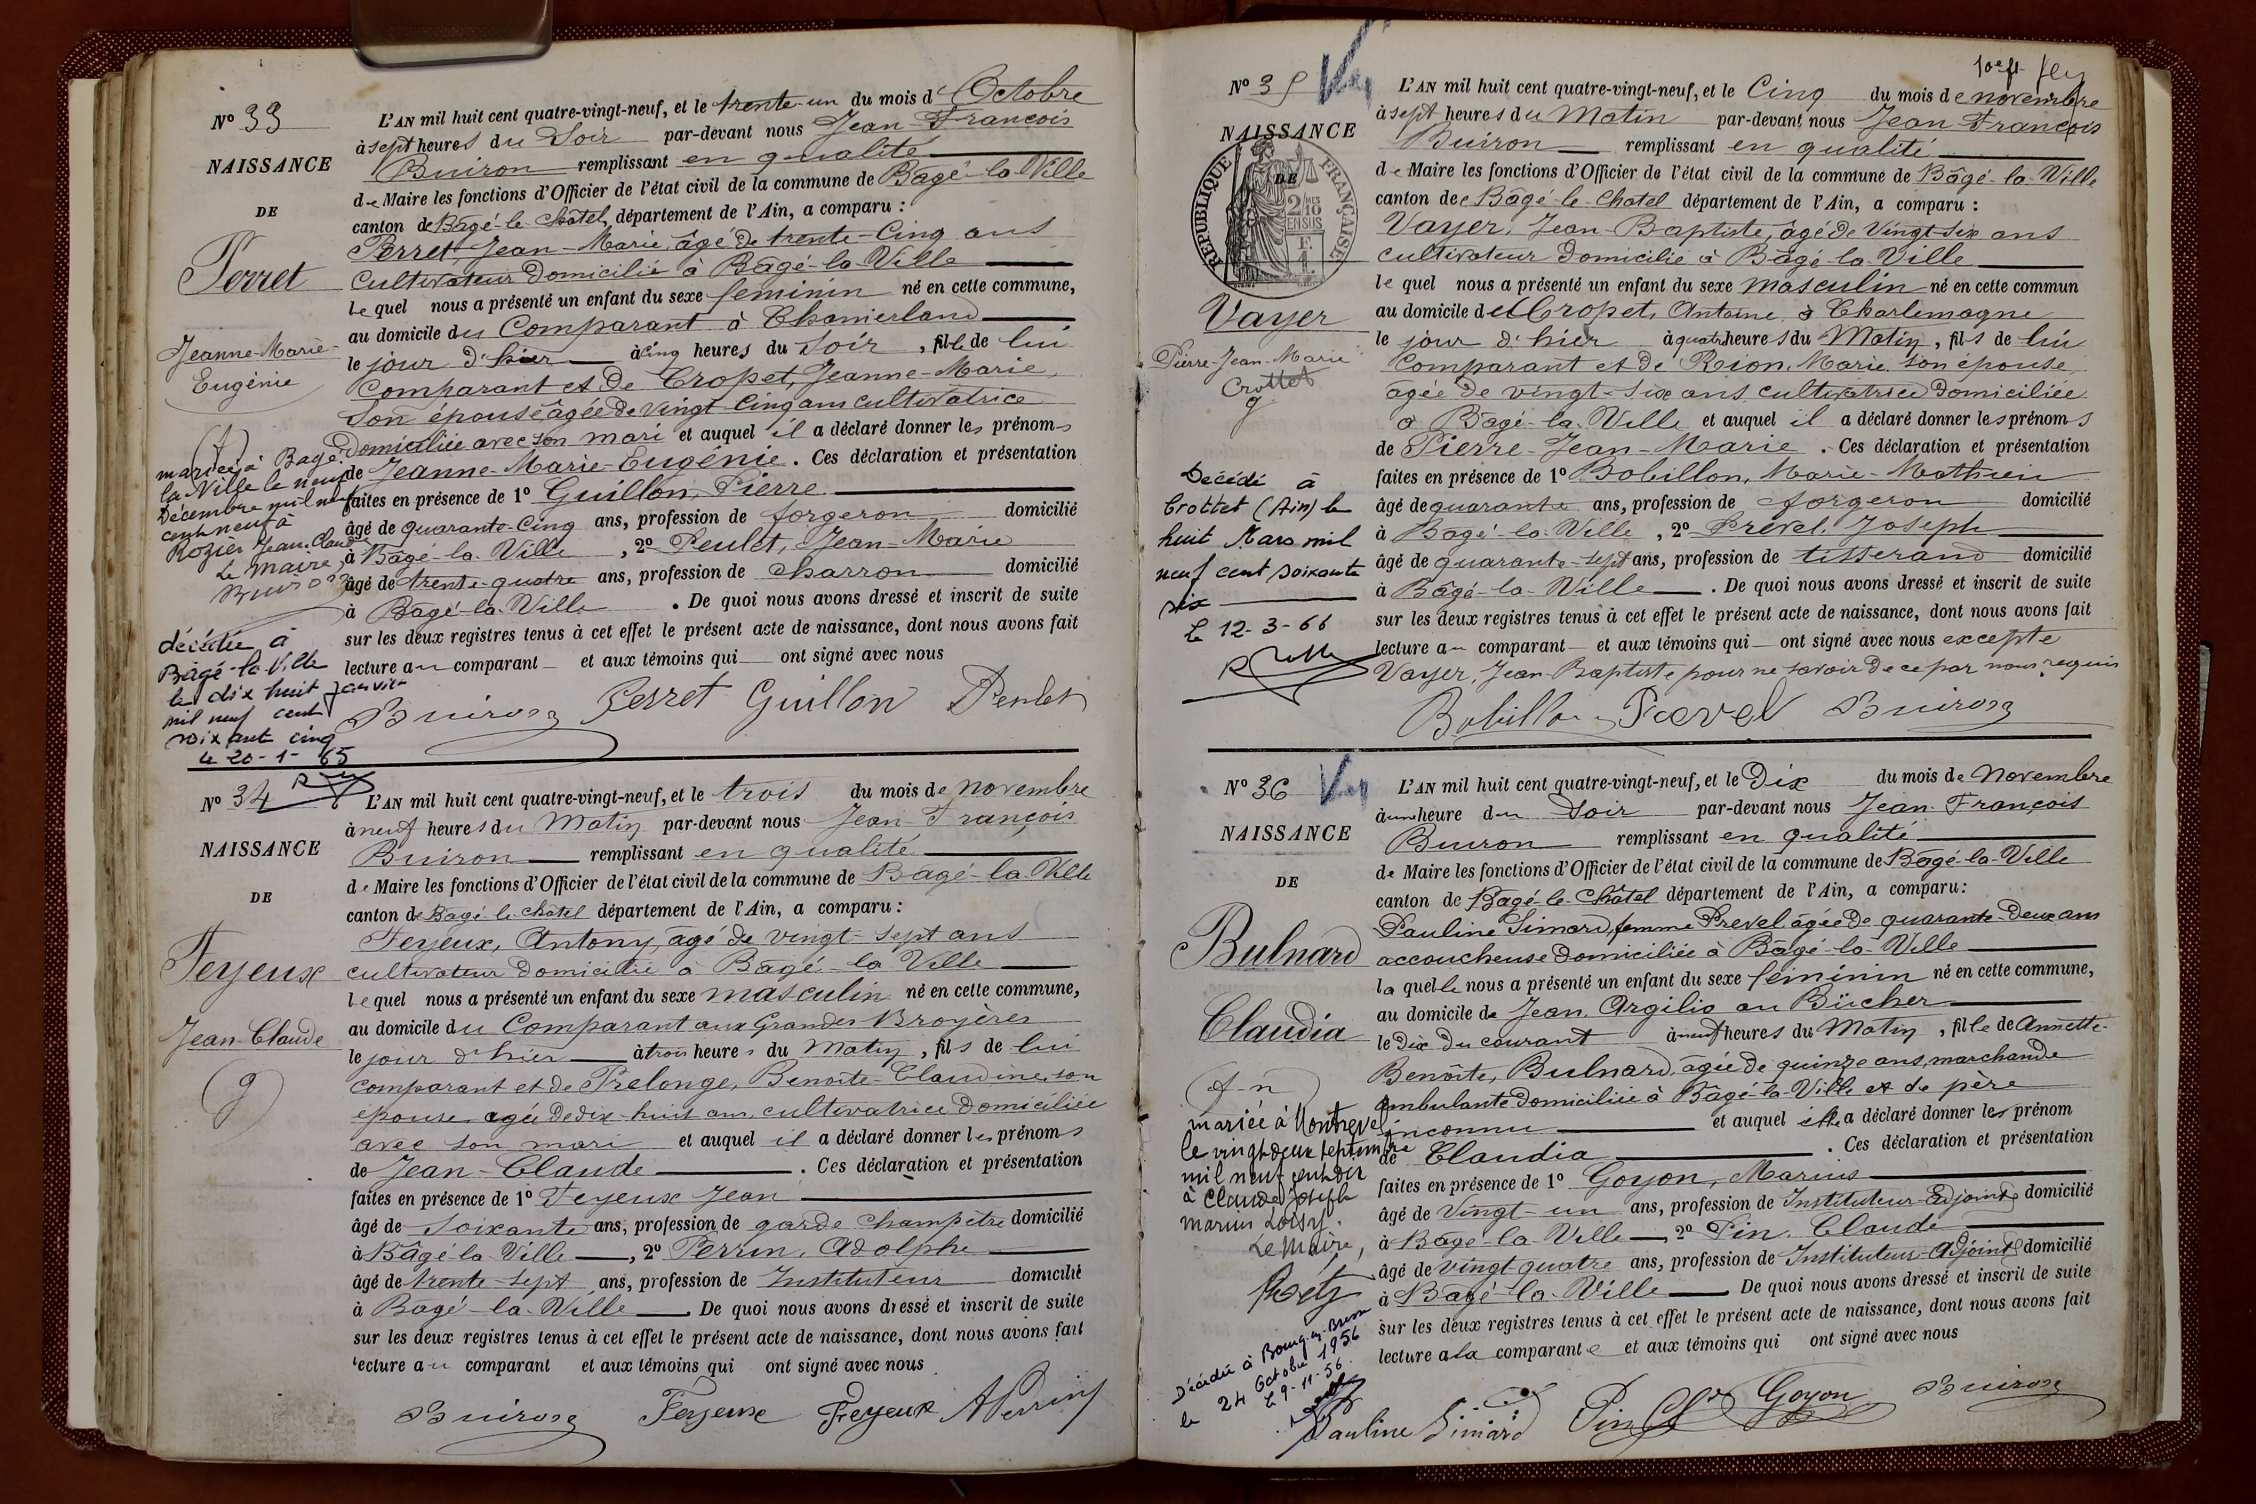 Nº 33
NAISSANCE
DE
Perret
Jeanne-Marie-
Eugénie
mariée à Bagé-
la-Ville le neuf
Décembre mil neuf
cent neuf à
Rozier Jean-Claude
Le Maire,
Buiron
décédée à
Bâgé-la-Ville
le dix huit janvier
mil neuf cent
soixante cinq
le 20-1-65
L'AN mil huit cent quatre-vingt-neuf, et le trente-un du mois d'Octobre
à sept heures du Soir par-devant nous Jean-François
Buiron remplissant en qualité
de Maire les fonctions d'Officier de l'état civil de la commune de Bâgé-la-Ville
canton de Bâgé-le-Châtel, département de l'Ain, a comparu :
Perret, Jean-Marie, âgé de trente-Cinq ans
Cultivateur Domicilié à Bâgé-la-Ville
lequel nous a présenté un enfant du sexe feminin né en cette commune,
au domicile du Comparant à Chamerland
le jour d'hier à cinq heures du Soir, fille de lui
Comparant et de Cropet, Jeanne-Marie,
Son épouse âgée de vingt-cinq ans cultivatrice
Domiciliée avec son mari et auquel il a déclaré donner les prénoms
de Jeanne-Marie-Eugénie. Ces déclaration et présentation
faites en présence de 1º Guillon, Pierre
âgé de quarante-cinq ans, profession de forgeron domicilié
à Bâgé-la-Ville, 2º Peulet, Jean-Marie
âgé de trente-quatre ans, profession de charron domicilié
à Bagé-la-Ville. De quoi nous avons dressé et inscrit de suite
sur les deux registres tenus à cet effet le présent acte de naissance, dont nous avons fait
lecture au comparant et aux témoins qui ont signé avec nous
Buiron Perret Guillon Peulet
Nº 34
NAISSANCE
DE
Feyeux
Jean-Claude
L'AN mil huit cent quatre-vingt-neuf, et le trois du mois de novembre
à neuf heures du Matin par-devant nous Jean-François
Buiron remplissant en qualité
de Maire les fonctions d'Officier de l'état civil de la commune de Bâgé-la-Ville
canton de Bâgé-le-Châtel département de l'Ain, a comparu :
Feyeux, Antony, âgé de vingt-sept ans
cultivateur Domicilié à Bâgé-la-Ville
lequel nous a présenté un enfant du sexe masculin né en cette commune,
au domicile du Comparant aux Grandes Broyères
le jour d'hier à trois heures du Matin, fils de lui
comparant et de Prelonge, Benoîte-Claudine, son
épouse agée de dix-huit ans, cultivatrice Domiciliée
avec son mari et auquel il a déclaré donner les prénoms
de Jean-Claude. Ces déclaration et présentation
faites en présence de 1º Feyeux Jean
âgé de Soixante ans, profession de garde champêtre domicilié
à Bâgé-la-Ville, 2º Perrin, Adolphe
âgé de trente-sept ans, profession de Instituteur domicilié
à Bagé-la-Ville. De quoi nous avons dressé et inscrit de suite
sur les deux registres tenus à cet effet le présent acte de naissance, dont nous avons fait
lecture au comparant et aux témoins qui ont signé avec nous
Buiron Feyeux Feyeux APerrin
Nº 35
NAISSANCE
DE
RÉPUBLIQUE FRANÇAISE
2/10 EN SUS
Vayer
Pierre-Jean-Marie
Crottet
Décédé à
Crottet (Ain) le
huit Mars mil
neuf cent soixante
six
le 12-3-66
L'AN mil huit cent quatre-vingt-neuf, et le Cinq du mois de novembre
à sept heures du Matin par-devant nous Jean François
Buiron remplissant en qualité
de Maire les fonctions d'Officier de l'état civil de la commune de Bâgé-la-Ville
canton de Bâgé-le-Chatel département de l'Ain, a comparu :
Vayer, Jean-Baptiste, âgé de Vingt-six ans
cultivateur Domicilié à Bâgé-la-Ville
lequel nous a présenté un enfant du sexe masculin né en cette commun
au domicile de Cropet, Antoine à Charlemagne
le jour d'hier à quatre heures du Matin, fils de lui
Comparant et de Rion, Marie son épouse
agée de vingt-six ans, cultivatrice Domiciliée
à Bâgé-la-Ville et auquel il a déclaré donner les prénoms
de Pierre-Jean-Marie. Ces déclaration et présentation
faites en présence de 1º Bobillon, Marie-Mathieu
âgé de quarante ans, profession de forgeron domicilié
à Bâgé-la-Ville, 2º Prevel, Joseph
âgé de quarante-sept ans, profession de tisserand domicilié
à Bâgé-la-Ville. De quoi nous avons dressé et inscrit de suite
sur les deux registres tenus à cet effet le présent acte de naissance, dont nous avons fait
lecture au comparant et aux témoins qui ont signé avec nous excepté
Vayer, Jean-Baptiste pour ne savoir de ce par nous requis
Bobillon Prevel Buiron
Nº 36
NAISSANCE
DE
Bulnard
Claudia
mariée à Montrevel
le vingt deux septembre
mil neuf cent dix
à Claude Joseph
Marius Loisy.
Le Maire,
Décédée à Bourg-en-Bresse
le 24 Octobre 1956
le 9-11-56.
L'AN mil huit cent quatre-vingt-neuf, et le Dix du mois de Novembre
à une heure du Soir par-devant nous Jean-François
Buiron remplissant en qualité
de Maire les fonctions d'Officier de l'état civil de la commune de Bâgé-la-Ville
canton de Bâgé-le-Châtel département de l'Ain, a comparu :
Pauline Simard, femme Prevel âgée de quarante-Deux ans
accoucheuse Domiciliée à Bâgé-la-Ville
laquelle nous a présenté un enfant du sexe féminin né en cette commune,
au domicile de Jean, Argilio au Bücher
le Dix du courant à neuf heures du Matin, fille de Annette-
Benoîte, Bulnard, âgée de quinze ans, marchande
ambulante Domiciliée à Bâgé-la-Ville et de père
inconnu et auquel elle a déclaré donner les prénom
de Claudia. Ces déclaration et présentation
faites en présence de 1º Goyon, Marius
âgé de Vingt-un ans, profession de Instituteur-Adjoint domicilié
à Bagé-la-Ville, 2º Pin, Claude
âgé de vingt quatre ans, profession de Instituteur-Adjoint domicilié
à Bagé-la-Ville De quoi nous avons dressé et inscrit de suite
sur les deux registres tenus à cet effet le présent acte de naissance, dont nous avons fait
lecture à la comparante et aux témoins qui ont signé avec nous
Pauline Simard Pin Cl Goyon Buiron